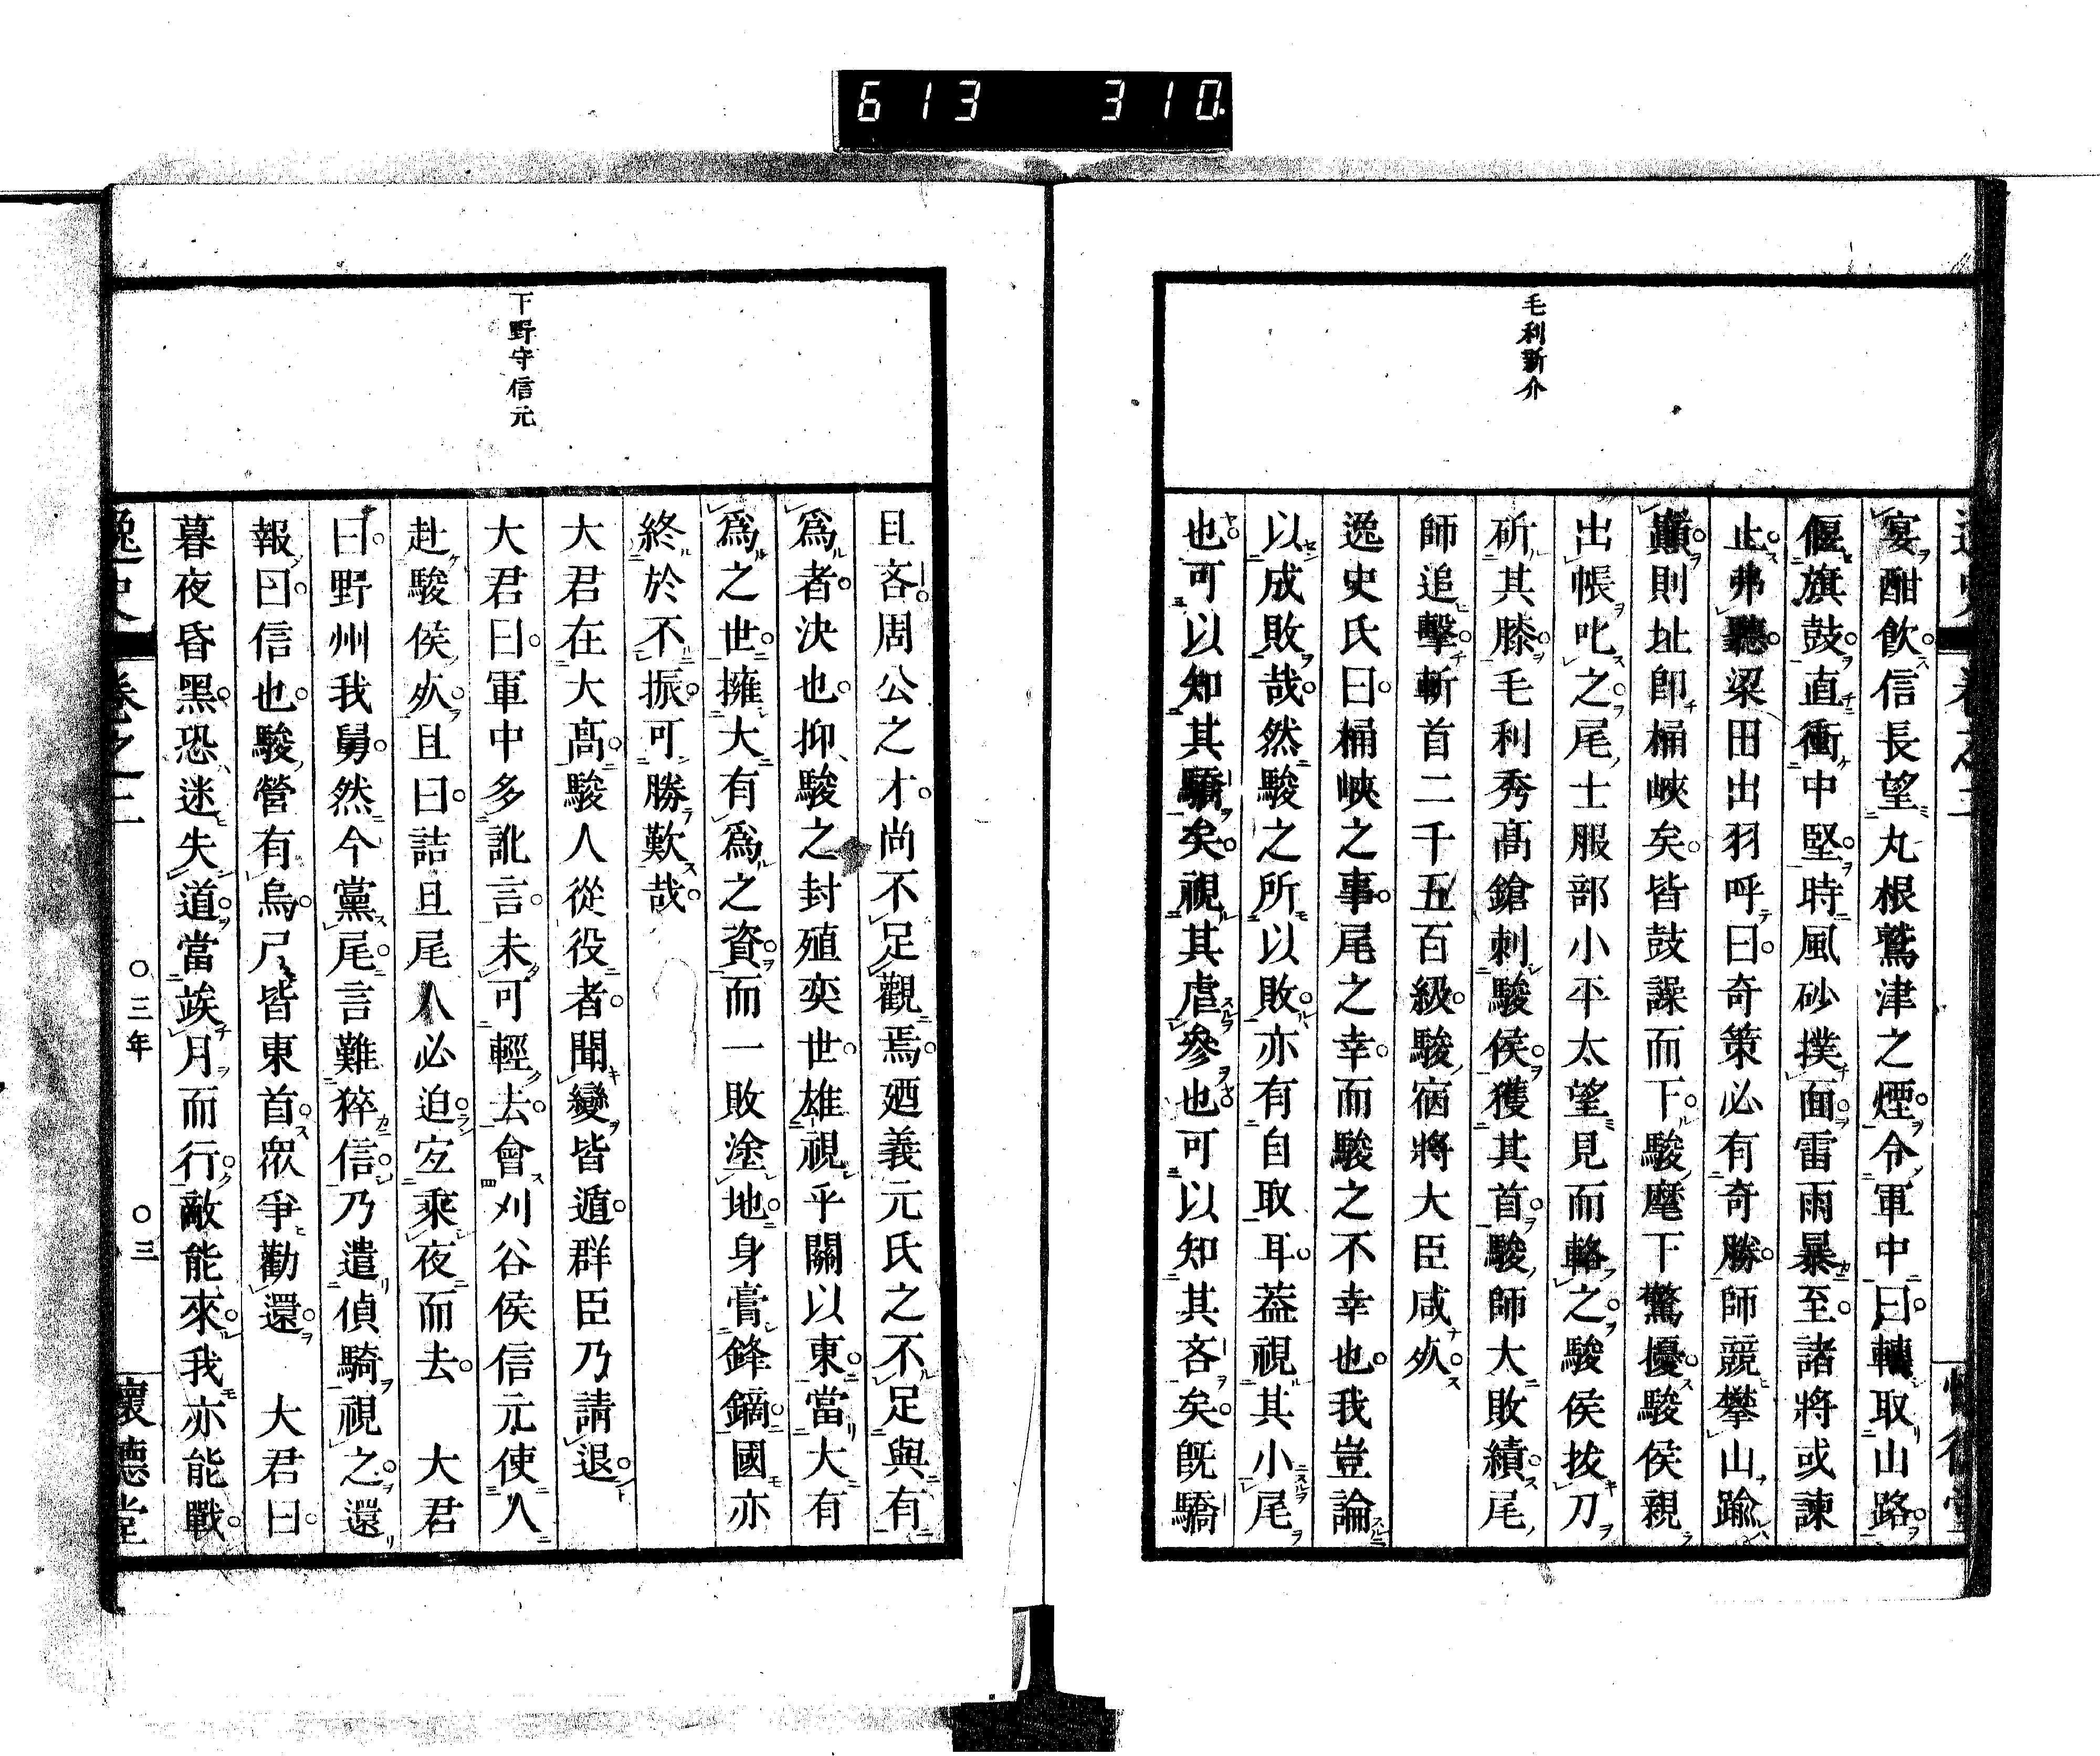 613 310
毛利新介
宴酣飲信長望丸根鷲津之煙令軍中曰轉取山路
偃旗鼓直衝中堅時風砂撲面雷雨暴至諸將或諫
止弗聽梁田出羽呼曰奇策必有奇勝師競攀山踰
巓則址卽桶峽矣皆鼓譟而下駿麾下驚擾駿侯親
出帳叱之尾士服部小平太望見而輅之駿侯拔刀
斫其膝毛利秀髙鎗刺駿侯獲其首駿師大敗績尾
師追擊斬首二千五百級駿宿將大臣咸死
逸史氏曰桶峽之事尾之幸而駿之不幸也我豈論
以成敗哉然駿之所以敗亦有自取耳葢視其小尾
也可以知其驕矣視其虐參也可以知其吝矣旣驕
下野守信元
且吝周公之才尚不足觀焉廼義元氏之不足與有
爲者決也抑駿之封殖奕世雄視乎關以東當大有
爲之世擁大有爲之資而一敗塗地身膏鋒鏑國亦
終於不振可勝歎哉
大君在大髙駿人從役者聞變皆遁群臣乃請退
大君曰軍中多訛言未可輕去會刈谷侯信元使人
赴駿侯死且曰詰旦尾人必迫宜乘夜而去 大君
曰野州我舅然今黨尾言難猝信乃遣偵騎視之還
報曰信也駿營有烏尸皆東首衆爭勸還 大君曰
暮夜昏黑恐迷失道當竢月而行敵能來我亦能戰
逸史 卷之二 ○三年 ○三 懷德堂